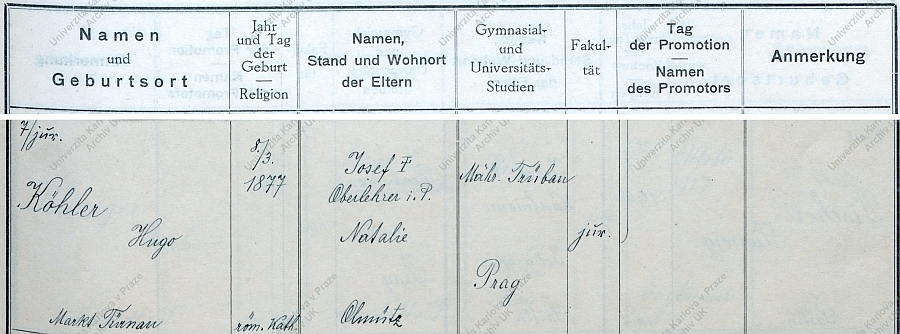 Namen
und
Geburtsort
Jahr
und Tag
der
Geburt
Religion
Namen,
Stand und Wohnort
der Eltern
Gymnasial-
und
Universitäts-
Studien
Fakul-
tät
Tag
der Promotion
Namen
des Promotors
Anmerkung
7/jur.
Köhler
Hugo
Markt Türnau
8./3.
1877
röm. Kath.
Josef †
Oberlehrer i. P.
Natalie
Olmütz
Mähr. Trübau
Prag
jur.
Univerzita Karlova v Praze
Archiv UK